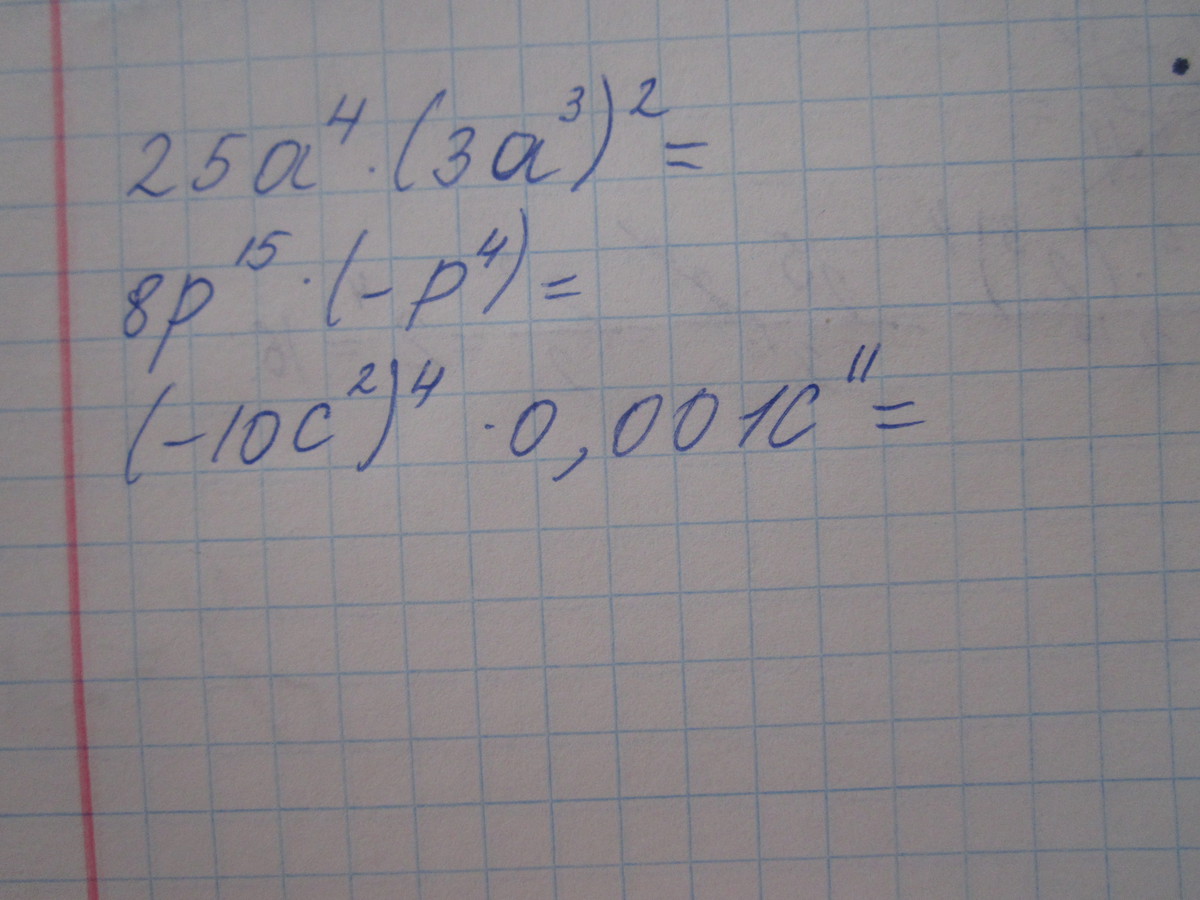 25a⁴·(3a³)²=
8p¹⁵·(-p⁴)=
(-10c²)⁴·0,001c¹¹=